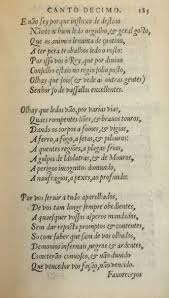 CANTO DECIMO. 185
E não sey por que influxo de destino
Não tem hum ledo orgulho, & geral gosto,
Que os animos leuanta de contino,
A ter pera trabalhos ledo o rosto:
Por isso vos ô Rey, que por diuino
Conselho estais no regio solio posto,
Olhay que sois (& vede as outras gentes)
Senhor só de vassallos excellentes.
Olhay que ledos vão, por varias vias,
Quais rompentes liões, & brauos touros,
Dando os corpos a fomes, & vigias,
A ferro, a fogo, a setas, & pilouros:
A quentes regiões, a plagas frias,
A golpes de Idolatras, & de Mouros,
A perigos incognitos do mundo,
A naufragios, a pexes, ao profundo:
Por vos seruir a tudo aparelhados,
De vos tam longe sempre obedientes,
A quaisquer vossos asperos mandados,
Sem dar reposta promptos & contentes,
So com saber que sam de vos olhados,
Demonios infernais, negros & ardentes,
Cometerão comuosco, & não duuido
Que vencedor vos façaõ, não vencido.
Fauorecey os